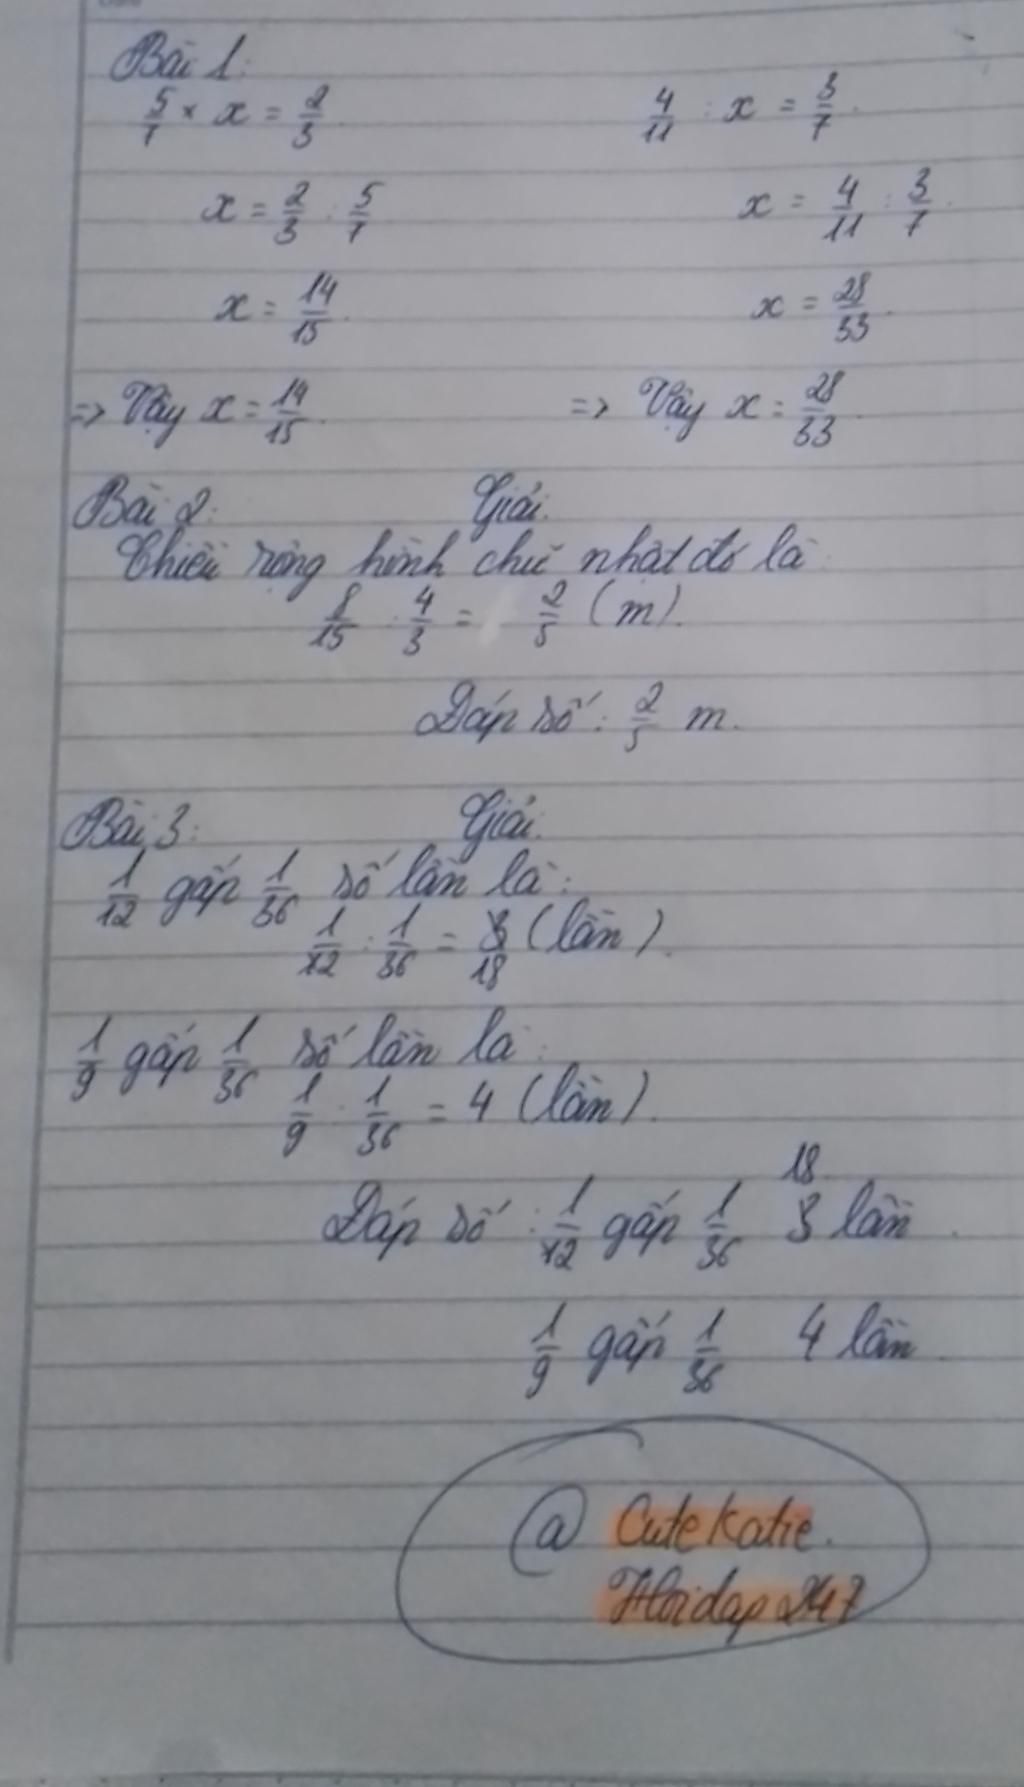 Bài 1:
5/7 × x = 2/3. 4/11 : x = 3/7.
x = 2/3 : 5/7 x = 4/11 : 3/7.
x = 14/15. x = 28/33.
=> Vậy x = 14/15. => Vậy x = 28/33.
Bài 2: Giải:
Chiều rộng hình chữ nhật đó là:
8/15 : 4/3 = 2/5 (m).
Đáp số: 2/5 m.
Bài 3: Giải:
1/12 gấp 1/36 số lần là:
1/12 : 1/36 = 3/18 (lần).
1/9 gấp 1/36 số lần là:
1/9 : 1/36 = 4 (lần).
18
Đáp số: 1/12 gấp 1/36 3 lần.
1/9 gấp 1/36 4 lần
@ Cutekatie.
Hoidap247